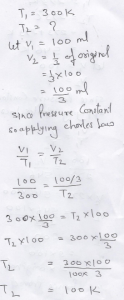 T₁ = 300K
T₂ = ?
Let V₁ = 100 ml
V₂ = 1/3 of original
= 1/3 × 100
= 100/3 ml
since Pressure Constant
so applying charles Law
V₁/T₁ = V₂/T₂
100/300 = 100/3/T₂
300 × 100/3 = T₂ × 100
T₂ × 100 = 300 × 100/3
T₂ = 300 × 100/100 × 3
T₂ = 100 K